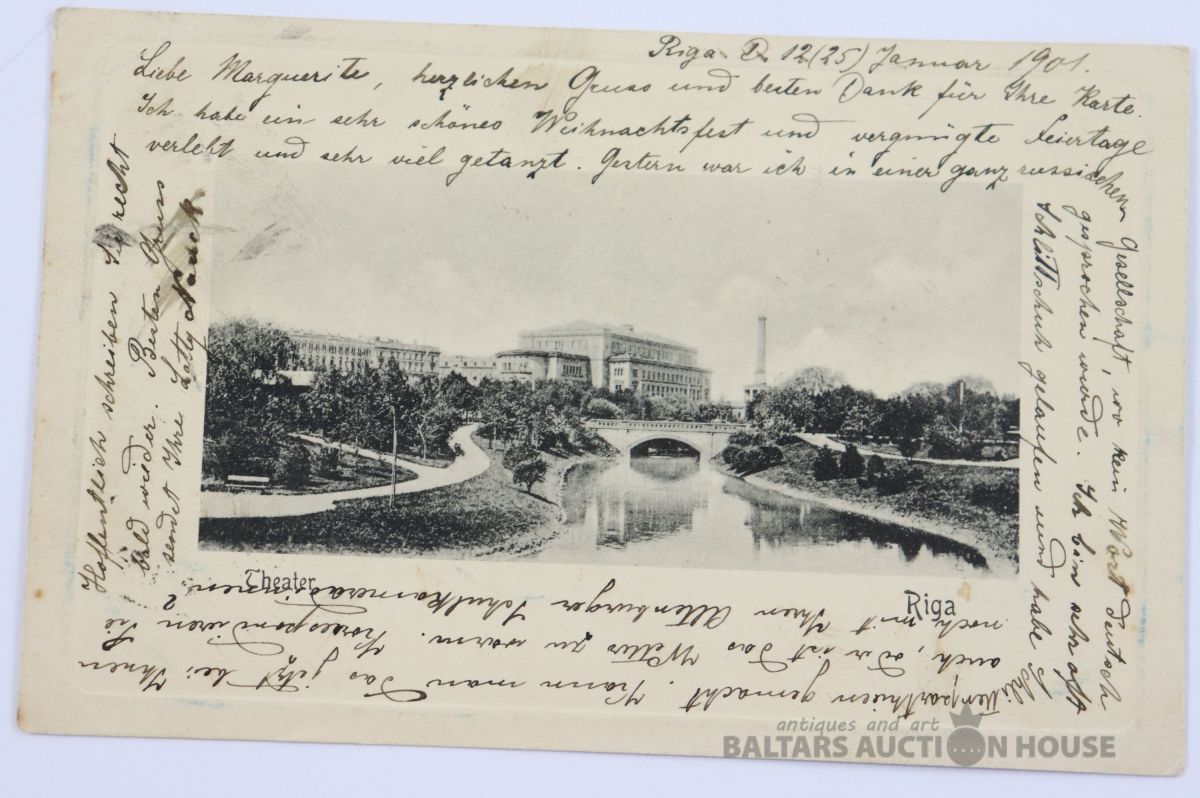 Riga D. 12(25) Januar 1901.
Liebe Marguerite, herzlichen Gruss und besten Dank für Ihre Karte.
Ich habe ein sehr schönes Weihnachtsfest und vergnügte Feiertage
verlebt und sehr viel getanzt. Gestern war ich in einer ganz russischen
Gesellschaft, wo kein Wort deutsch
gesprochen wurde. Ich bin sehr oft
Schlittschuh gelaufen und habe Schlit-
tenparthieen gemacht. Kann man das jetzt bei Ihnen
auch, oder ist das Wetter zu warm. Korrespondiren Sie
noch mit Ihren Altenburger Schulkameradinnen?
Hoffentlich schreiben Sie recht
bald wieder. Besten Gruss
sendet Ihre Lotty
Theater
Riga
antiques and art
BALTARS AUCTION HOUSE